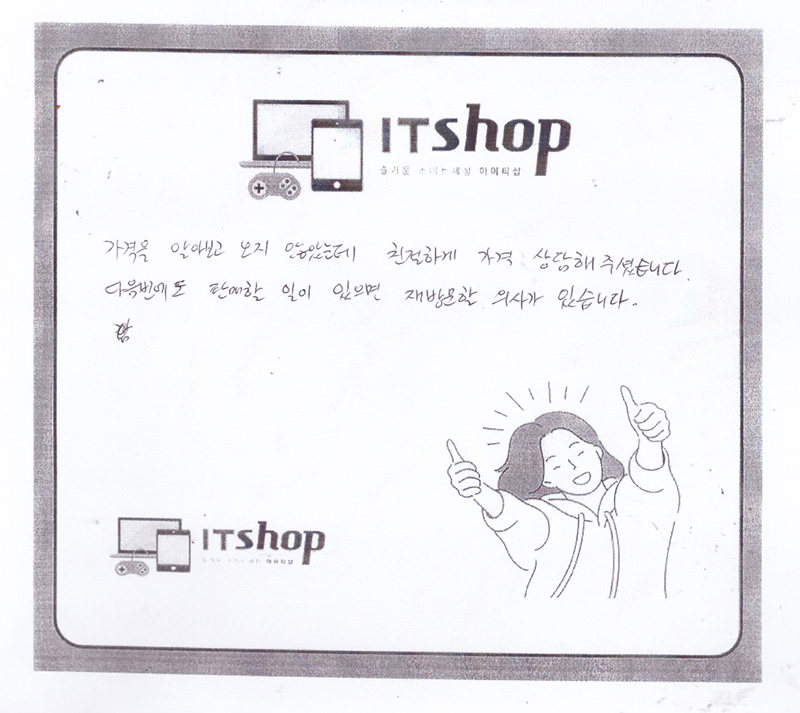 ITshop
즐거운 스마트세상 아이티샵
가격을 알아보고 오지 않았는데 친절하게 가격 상담해 주셨습니다.
다음번에도 판매할 일이 있으면 재방문할 의사가 있습니다.
ITshop
아이티샵